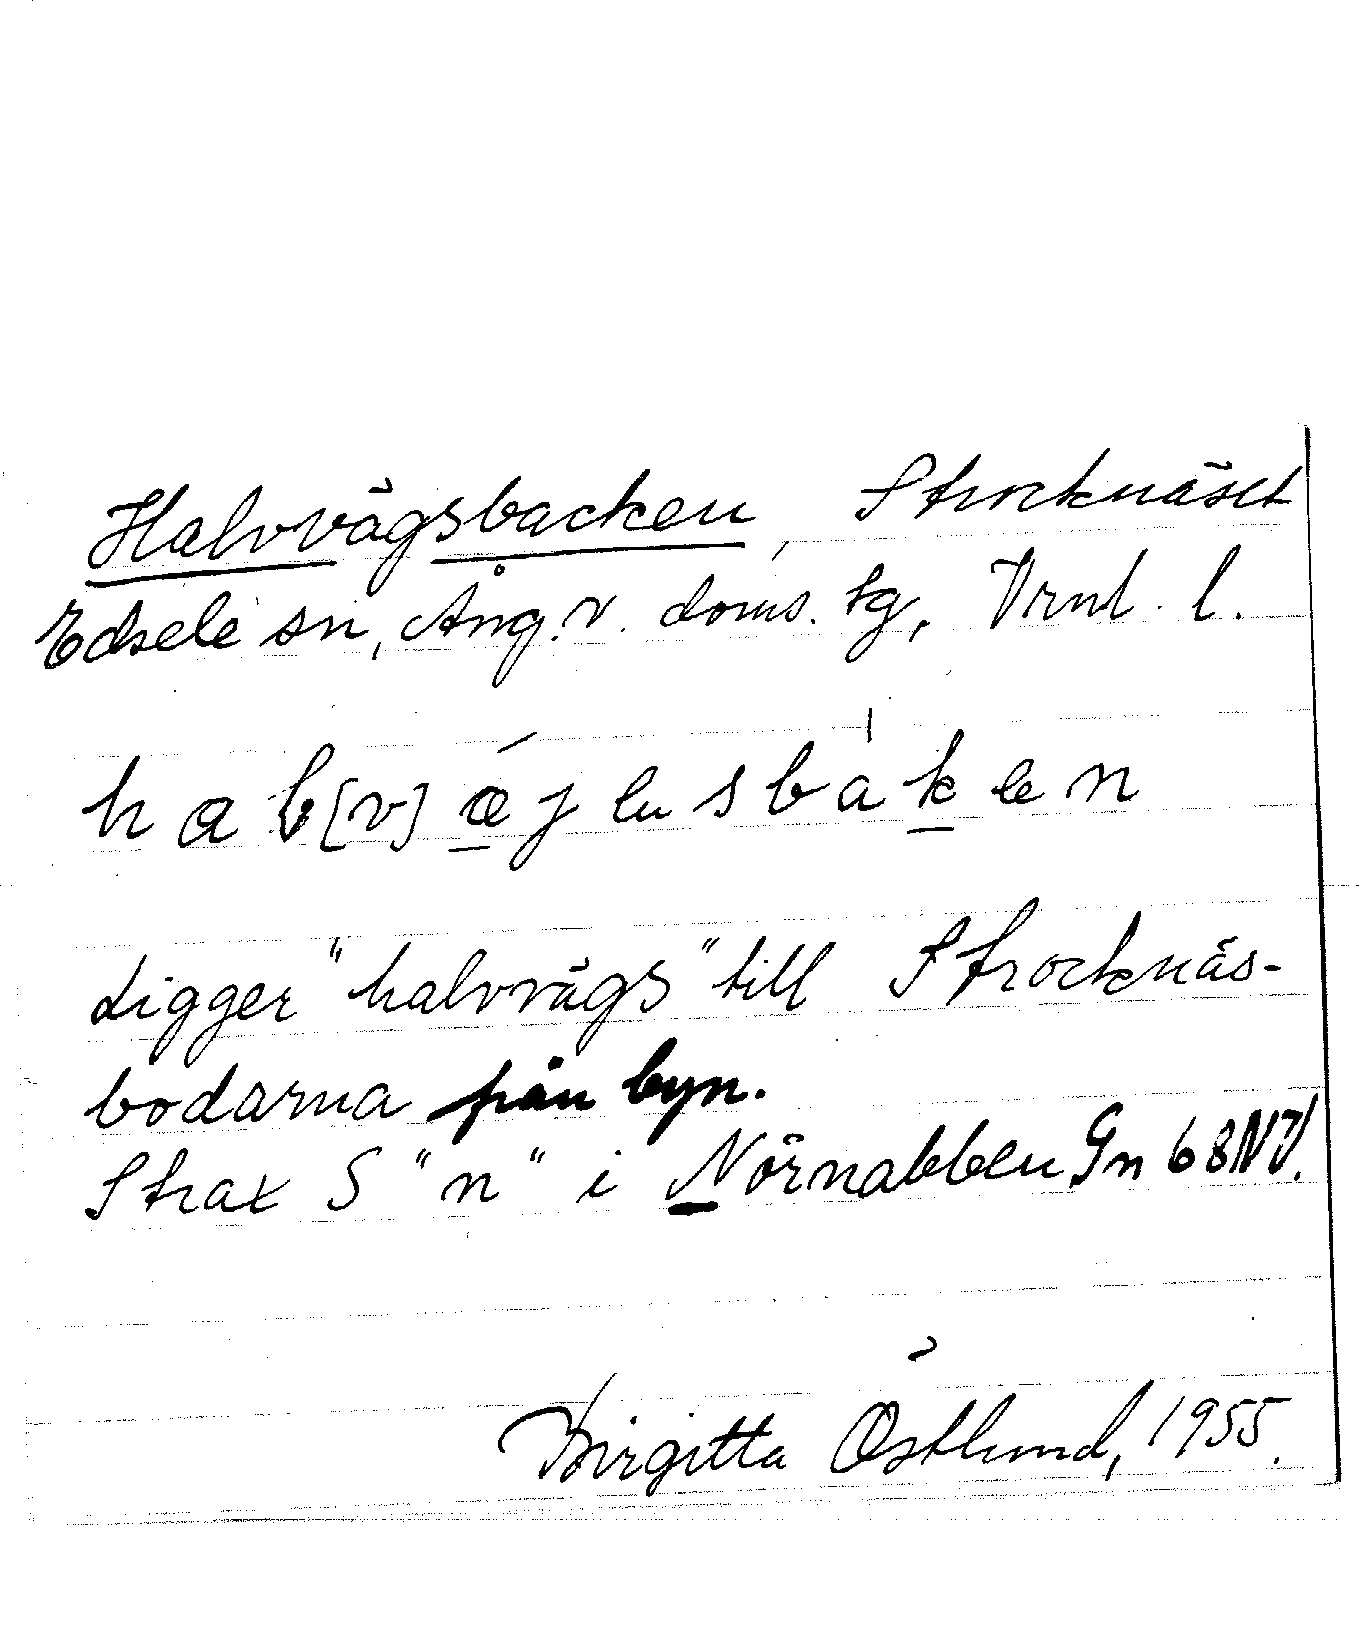 Halvvägsbacken, Strocknäset
Edsele sn, Ång. v. doms. tg, Vrnl. l.
Ligger "halvvägs" till Strocknäs-
bodarna från byn.
Strax S "n" i Nörnabben Gn 68NV.
Birgitta Östlund, 1955.